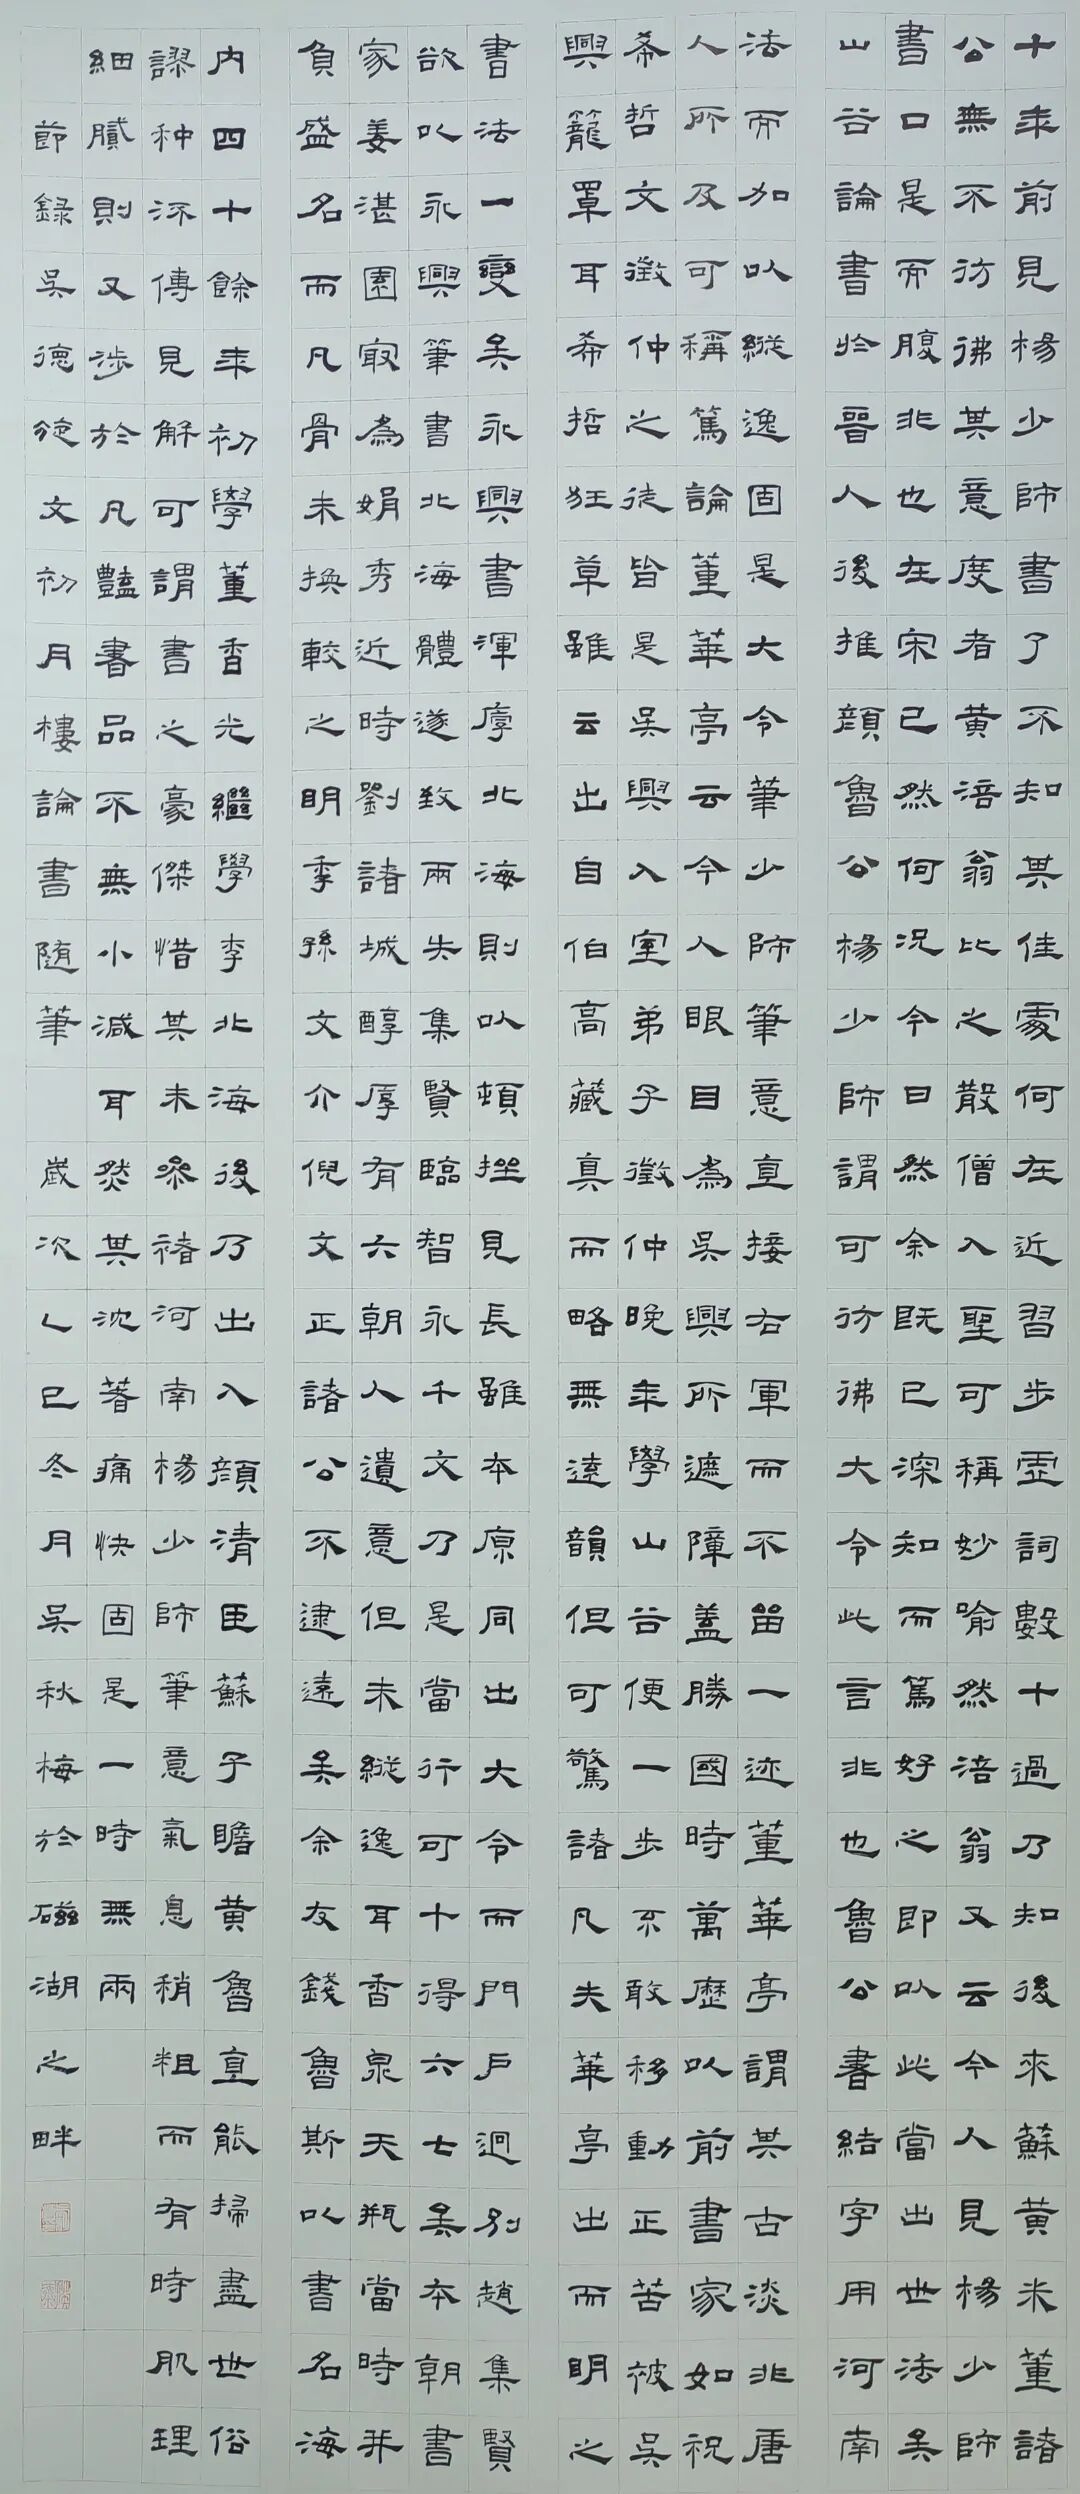 十年前見楊少師書了不知其佳處何在近習步虛詞數十過乃知後來蘇黃米董諸
公無不彷彿其意度者黃涪翁比之散僧入聖可稱妙喻然涪翁又云今人見楊少師
書口是而腹非也在宋已然何況今日然余既已深知而篤好之即以此當出世法矣
山谷論書於晉人後推顏魯公楊少師謂可彷彿大令此言非也魯公書結字用河南
法而加以縱逸固是大令筆少師筆意直接右軍而不留一迹董華亭謂其古淡非唐
人所及可稱篤論董華亭云今人眼目為吳興所遮障蓋勝國時萬歷以前書家如祝
希哲文徵仲之徒皆是吳興入室弟子徵仲晚年學山谷便一步不敢移動正苦被吳
興籠罩耳希哲狂草雖云出自伯高藏真而略無遠韻但可驚諸凡夫華亭出而明之
書法一變矣永興書渾厚北海則以頓挫見長雖本原同出大令而門戶迥別趙集賢
欲以永興筆書北海體遂致兩失集賢臨智永千文乃是當行可十得六七矣本朝書
家姜湛園最為娟秀近時劉諸城醇厚有六朝人遺意但未縱逸耳香泉天瓶當時并
負盛名而凡骨未換較之明季孫文介倪文正諸公不逮遠矣余友錢魯斯以書名海
內四十餘年初學董香光繼學李北海後乃出入顏清臣蘇子瞻黃魯直能掃盡世俗
謬種流傳見解可謂書之豪傑惜其未參褚河南楊少師筆意氣息稍粗而有時肌理
細膩則又涉於凡豔書品不無小減耳然其沈著痛快固是一時無兩
節錄吳德旋文初月樓論書隨筆 歲次乙巳冬月吳秋梅於磁湖之畔